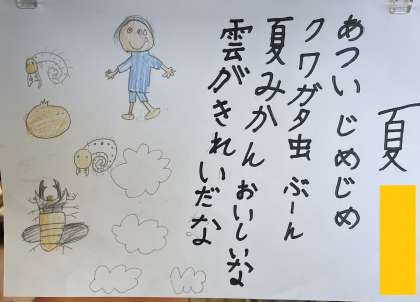 夏
あつい じめじめ
クワガタ虫 ぶーん
夏みかん おいしいな
雲がきれいだな